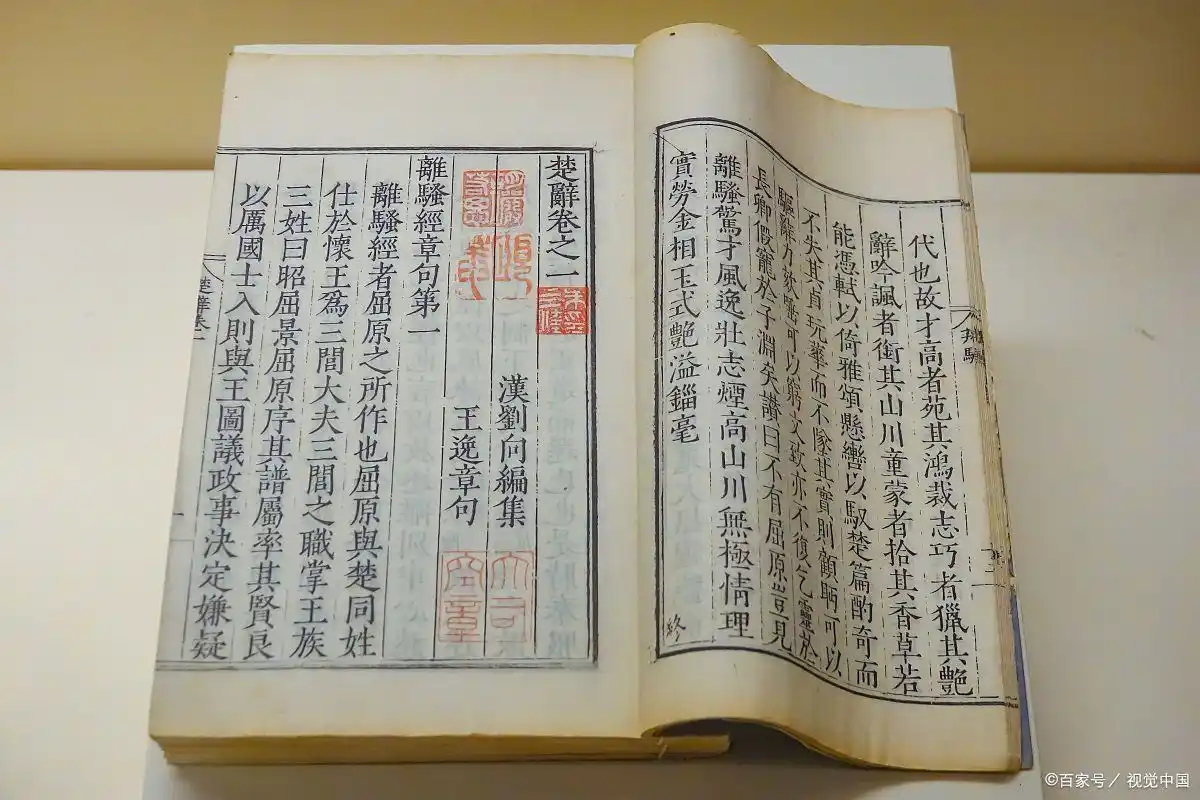 代也故才高者苑其鴻裁志巧者獵其艷
辭吟諷者銜其山川童蒙者拾其香草若
能憑軾以倚雅頌懸轡以馭楚篇酌奇而
不失其貞玩華而不墜其實則顧眄可以
驅辭力欬唾可以窮文致亦不復乞靈於
長卿假寵於子淵矣讚曰不有屈原豈見
離騷驚才風逸壯志煙高山川無極情理
實勞金相玉式艷溢錙毫 終
楚辭卷之一
漢劉向編集
王逸章句
離騷經章句第一
離騷經者屈原之所作也屈原與楚同姓
仕於懷王爲三閭大夫三閭之職掌王族
三姓曰昭屈景屈原序其譜屬率其賢良
以厲國士入則與王圖議政事決定嫌疑
楚辭卷一
©百家号／視觉中国